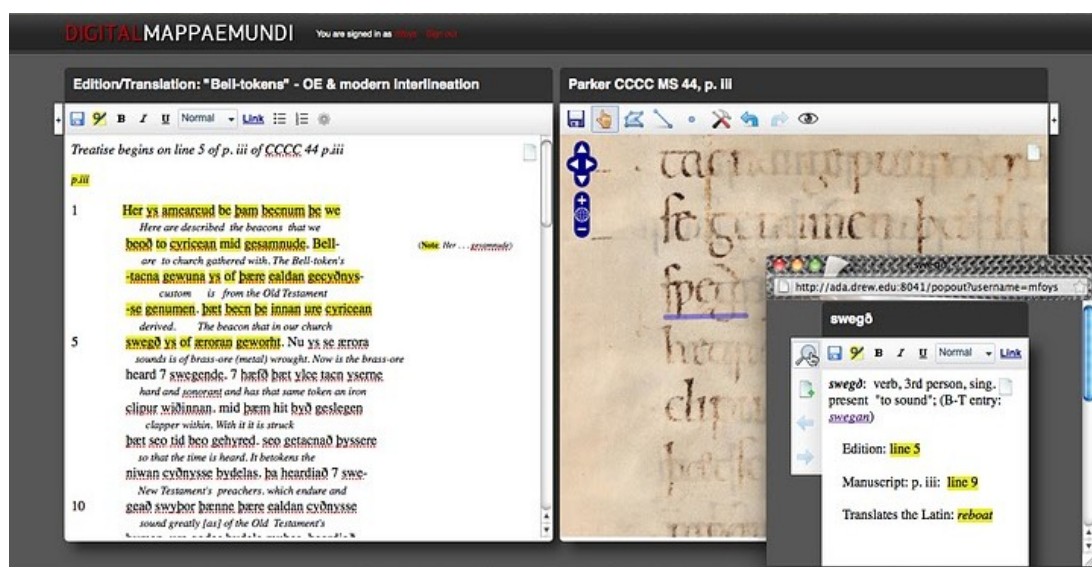 DIGITALMAPPAEMUNDI You are signed in as mfoys Sign out
Edition/Translation: "Bell-tokens" - OE & modern interlineation
B I U Normal Link
Treatise begins on line 5 of p. iii of CCCC 44 p.iii
p.iii
1 Her ys amearcud be þam becnum þe we
Here are described the beacons that we
beoð to cyricean mid gesamnude. Bell-
are to church gathered with. The Bell-token's
(Note Her . . . gesamnude)
-tacna gewuna ys of þære ealdan gecyðnys-
custom is from the Old Testament
-se genumen. þæt becn þe innan ure cyricean
derived. The beacon that in our church
5 swegð ys of æroran geworht. Nu ys se ærora
sounds is of brass-ore (metal) wrought. Now is the brass-ore
heard 7 swegende. 7 hæfð þæt ylce tacn yserne
hard and sonorant and has that same token an iron
clipur wiðinnan. mid þæm hit byð geslegen
clapper within. With it it is struck
þæt seo tid beo gehyred. seo getacnað þyssere
so that the time is heard. It betokens the
niwan cyðnysse bydelas. þa heardiað 7 swe-
New Testament's preachers. which endure and
10 geað swyþor þænne þære ealdan cyðnysse
sound greatly [as] of the Old Testament's
Parker CCCC MS 44, p. iii
swegð
http://ada.drew.edu:8041/popout?username=mfoys
swegð
B I U Normal Link
swegð: verb, 3rd person, sing.
present "to sound"; (B-T entry:
swegan)
Edition: line 5
Manuscript: p. iii: line 9
Translates the Latin: reboat